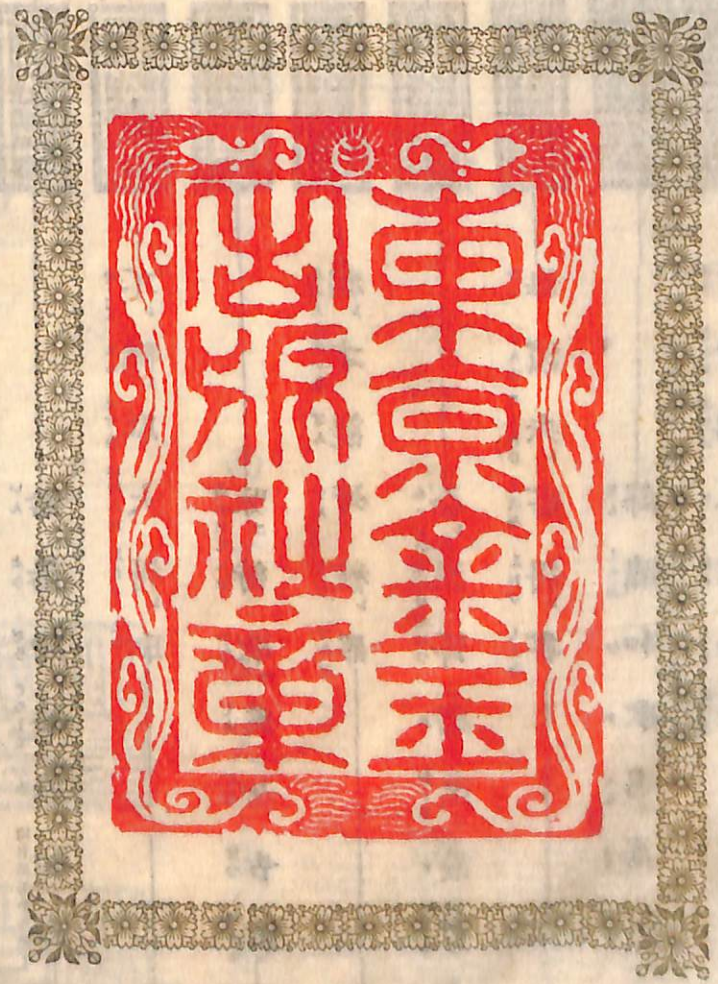 東亰金玉
出版社章